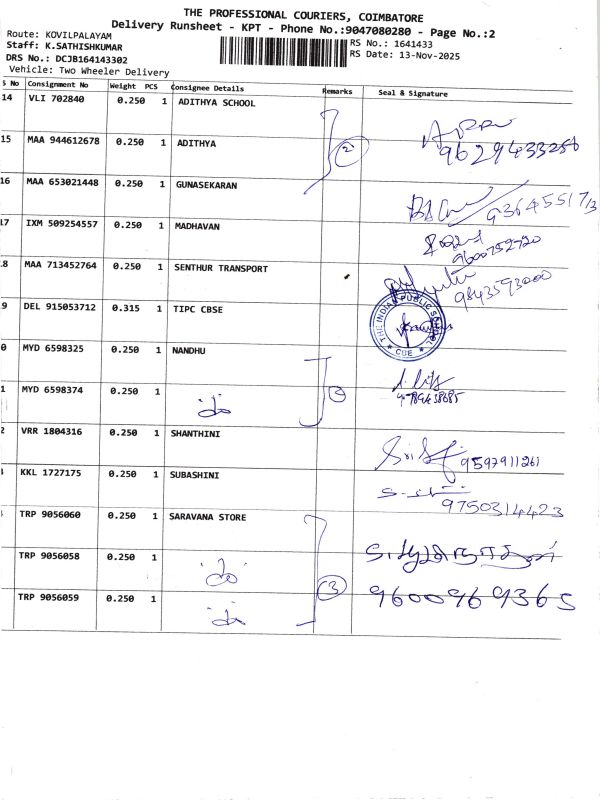 THE PROFESSIONAL COURIERS, COIMBATORE
Delivery Runsheet - KPT - Phone No.:9047080280 - Page No.:2
Route: KOVILPALAYAM
Staff: K.SATHISHKUMAR RS No.: 1641433
DRS No.: DCJB164143302 RS Date: 13-Nov-2025
Vehicle: Two Wheeler Delivery
S No Consignment No Weight PCS Consignee Details Remarks Seal & Signature
14 VLI 702840 0.250 1 ADITHYA SCHOOL
15 MAA 944612678 0.250 1 ADITHYA 2 9629433256
16 MAA 653021448 0.250 1 GUNASEKARAN 9364551713
17 IXM 509254557 0.250 1 MADHAVAN 9600752720
8 MAA 713452764 0.250 1 SENTHUR TRANSPORT 9843593000
9 DEL 915053712 0.315 1 TIPC CBSE THE INDIAN PUBLIC SCHOOL CBE
0 MYD 6598325 0.250 1 NANDHU
1 MYD 6598374 0.250 1
2 VRR 1804316 0.250 1 SHANTHINI 9597911261
KKL 1727175 0.250 1 SUBASHINI 9750314423
TRP 9056060 0.250 1 SARAVANA STORE
TRP 9056058 0.250 1
TRP 9056059 0.250 1 3 9600969365